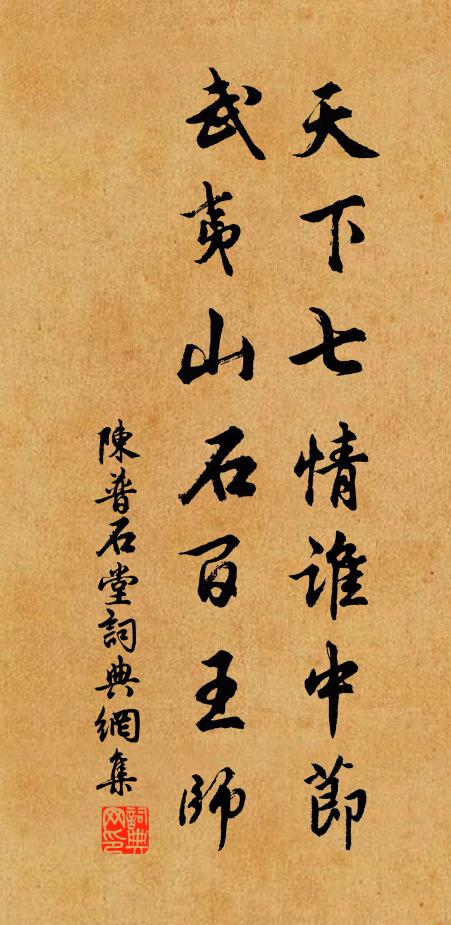 天下七情誰中節
武夷山石百王師
陳普石堂詞典網集
詞典网印